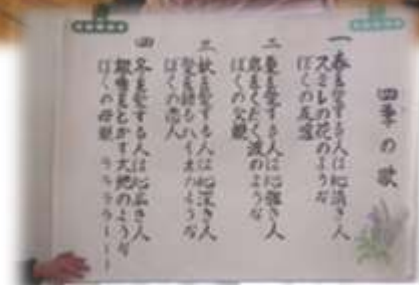 四季の歌
一 春を愛する人は心清き人
スミレの花のような
ぼくの友達
二 夏を愛する人は心強き人
岩をくだく波のような
ぼくの父親
三 秋を愛する人は心深き人
愛を語るハイネのような
ぼくの恋人
四 冬を愛する人は心広き人
根雪をとかす大地のような
ぼくの母親 ラララララーー